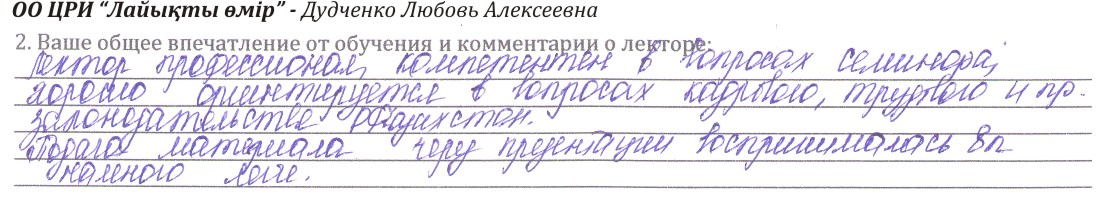 ОО ЦРИ “Лайықты өмір” - Дудченко Любовь Алексеевна
2. Ваше общее впечатление от обучения и комментарии о лекторе:
Лектор профессионал, компетентен в вопросах семинара,
хорошо ориентируется в вопросах кадрового, трудового и пр.
законодательства Казахстан.
Подача материала презентации воспринималась
легче.